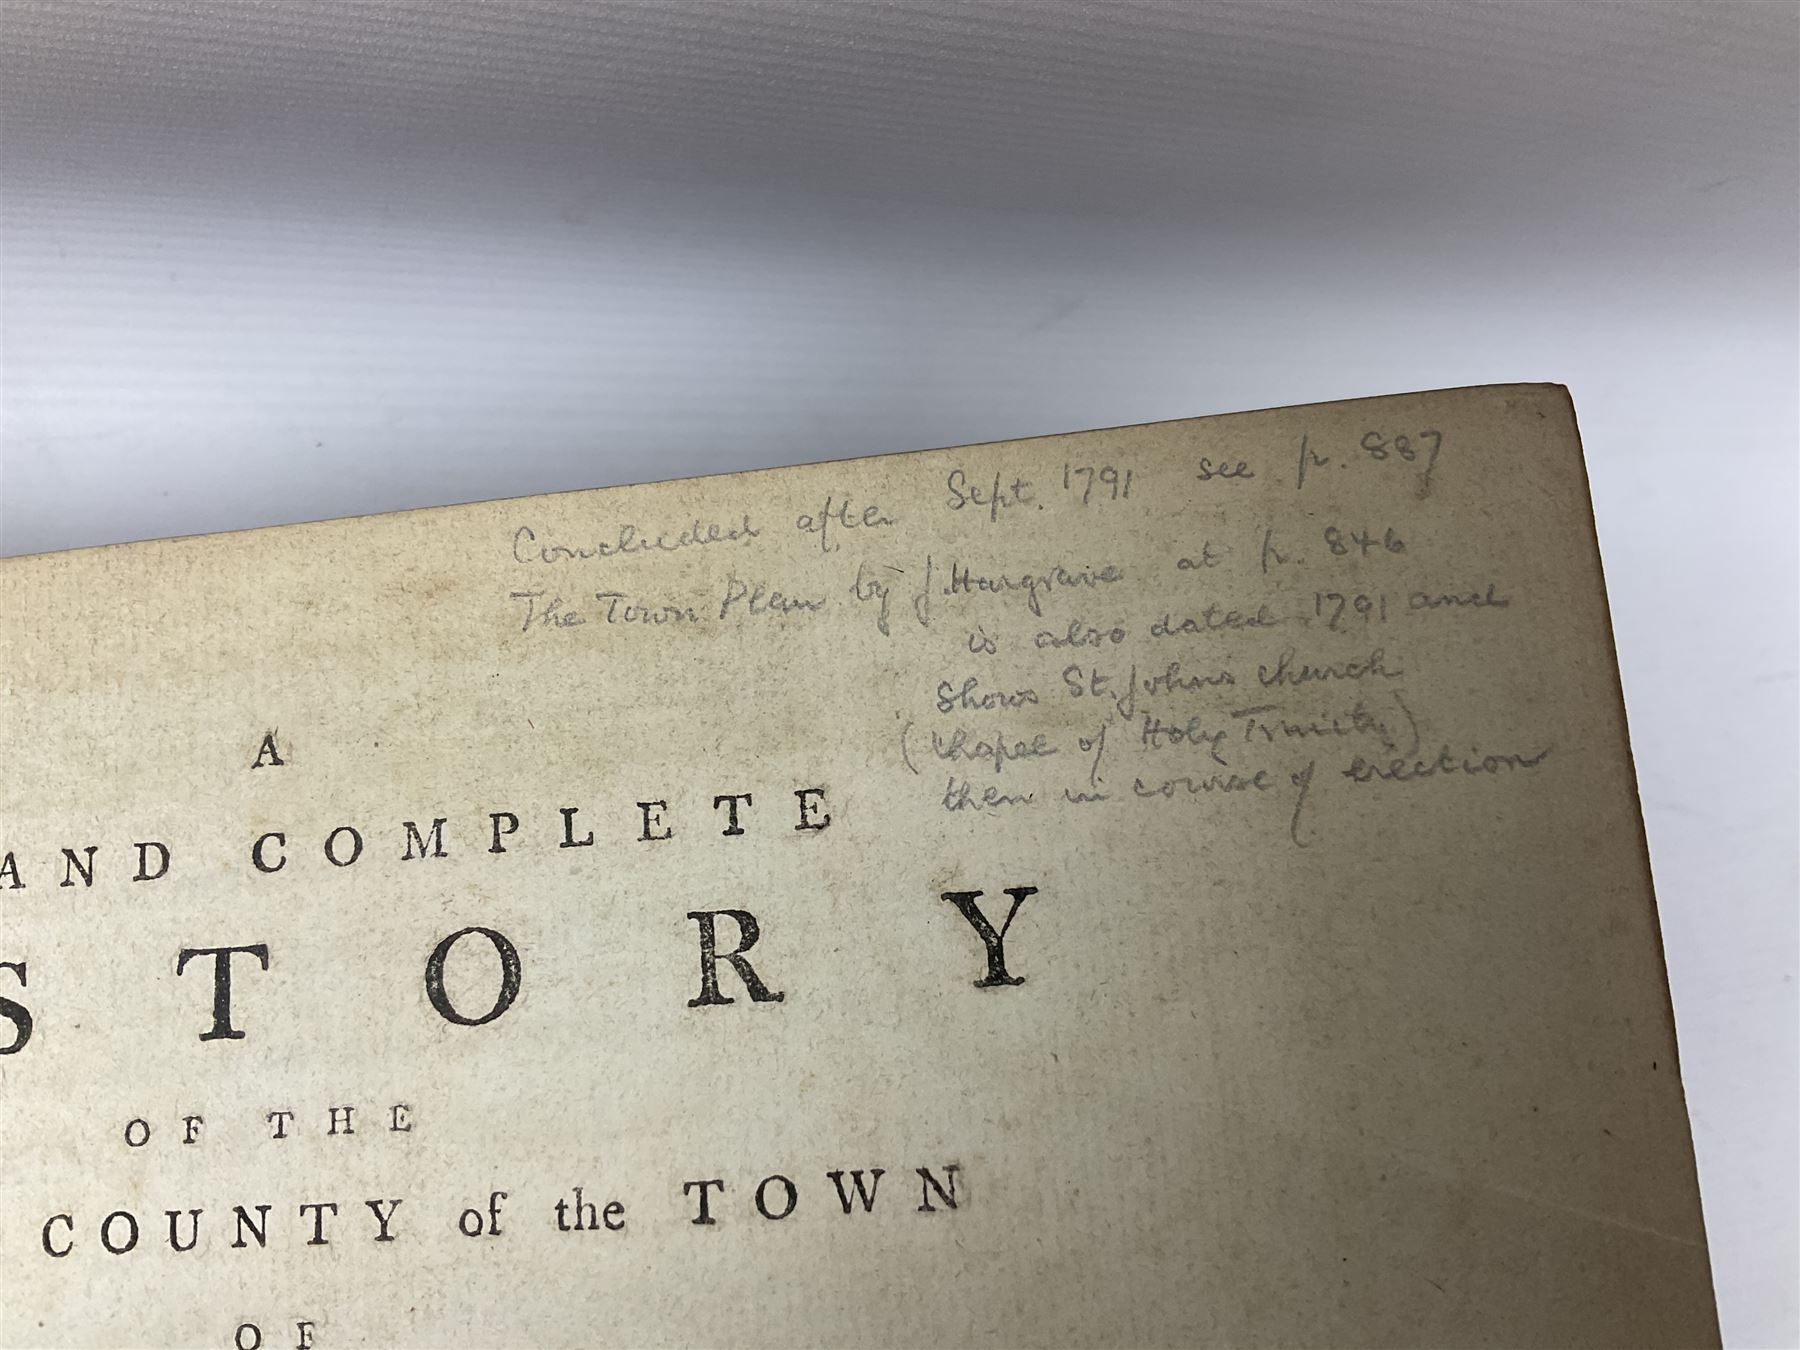 Concluded after Sept. 1791 see p. 887
The Town Plan by J. Hargrave at p. 846
is also dated 1791 and
shows St. Johns church
(chapel of Holy Trinity)
then in course of erection
A
AND COMPLETE
STORY
OF THE
COUNTY of the TOWN
OF